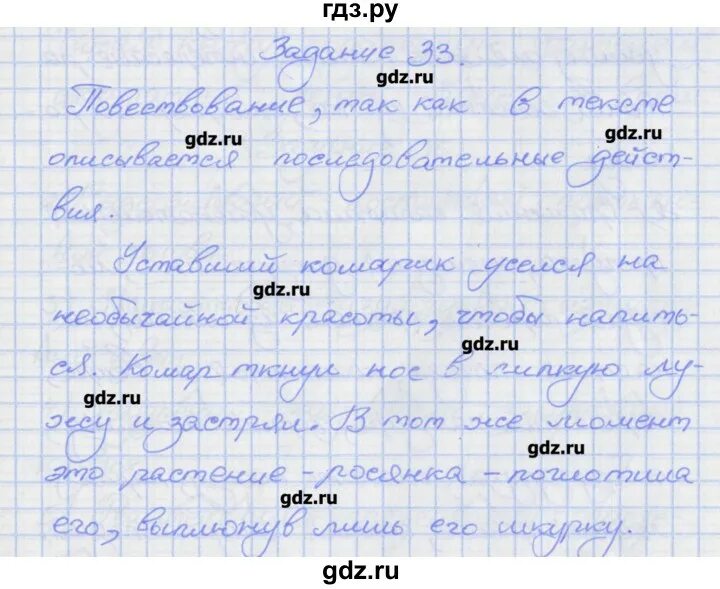 гдз.ру
Задание 33.
gdz.ru
Повествование, так как в тексте
gdz.ru
gdz.ru
описывается последовательные дейст-
вия.
Уставший комарик уселся на
gdz.ru
необычайной красоты, чтобы напить-
gdz.ru
ся. Комар ткнул нос в липкую лу-
gdz.ru
жу и застрял. В тот же момент
gdz.ru
это растение - росянка - поглотила
gdz.ru
его, выплюнув лишь его шкурку.
gdz.ru